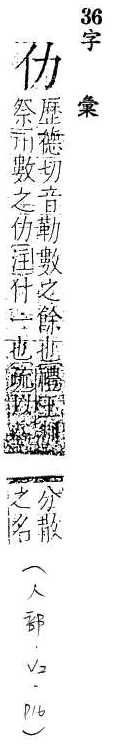 36 字彙
仂
歷德切音勒數之餘也禮王制
祭用數之仂注什一也疏以
分散
之名
(人部.V2-P16)